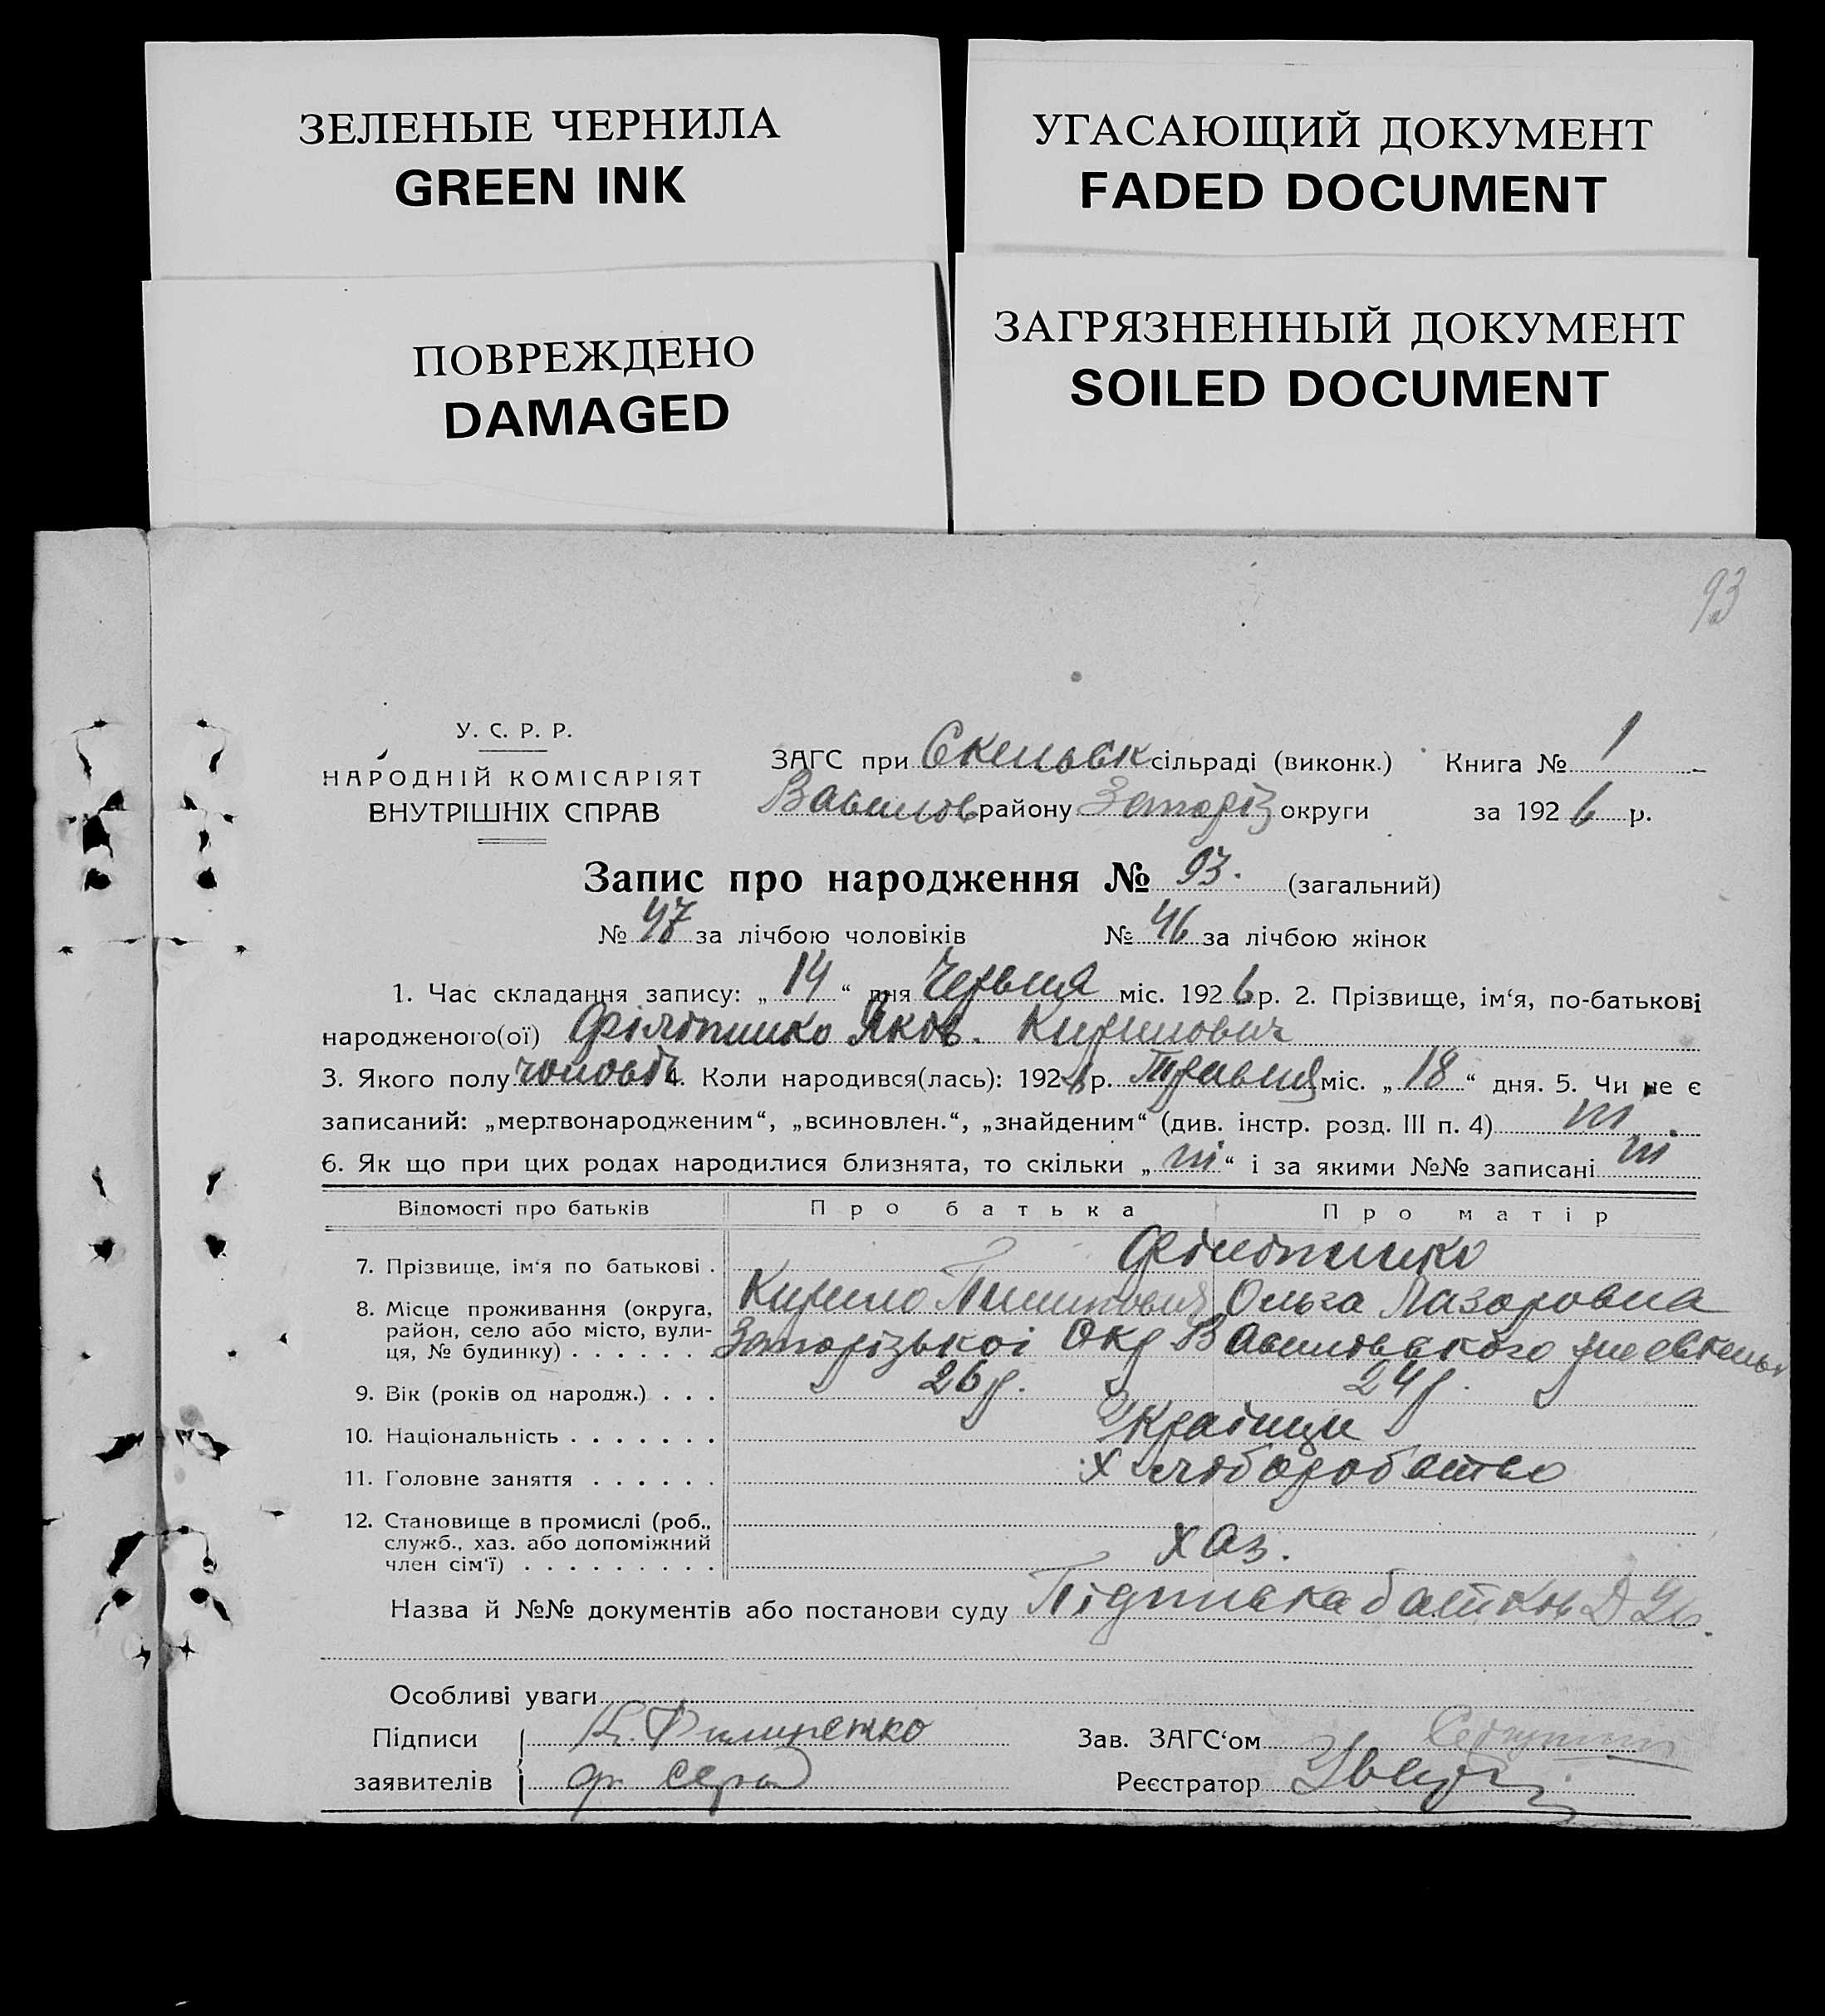 ЗЕЛЕНЫЕ ЧЕРНИЛА
GREEN INK
УГАСАЮЩИЙ ДОКУМЕНТ
FADED DOCUMENT
ПОВРЕЖДЕНО
DAMAGED
ЗАГРЯЗНЕННЫЙ ДОКУМЕНТ
SOILED DOCUMENT
93
У. С. Р. Р.
НАРОДНІЙ КОМІСАРІЯТ
ВНУТРІШНІХ СПРАВ
ЗАГС при Скельськ сільраді (виконк.) Книга № 1
Василов району Запоріз округи за 1926 р.
Запис про народження № 93. (загальний)
№ 47 за лічбою чоловіків № 46 за лічбою жінок
1. Час складання запису: „14“ дня Червня міс. 1926 р. 2. Прізвище, ім‘я, по-батькові
народженого(ої) Філіппико Яков. Кирилович
3. Якого полу чоловіч 4. Коли народився(лась): 1926 р. Травня міс. „18“ дня. 5. Чи не є
записаний: „мертвонародженим“, „всиновлен.“, „знайденим“ (див. інстр. розд. III п. 4) ні
6. Як що при цих родах народилися близнята, то скільки „ні“ і за якими №№ записані ні
Відомості про батьків Про батька Про матір
7. Прізвище, ім‘я по батькові .
8. Місце проживання (округа, Кирило Ольга Лазаровна
район, село або місто, вули-
ця, № будинку) . . . . . . Запорізької Окр Василівського
9. Вік (років од народж.) . . . 26 р. 24 р.
10. Національність . . . . . . . Країнци
11. Головне заняття . . . . . . Хліборобство
12. Становище в промислі (роб.,
служб., хаз. або допоміжний хаз.
член сім‘ї) . . . . . . . . .
Назва й №№ документів або постанови суду Підписка батьків
Особливі уваги
Підписи К. Филипенко Зав. ЗАГС‘ом
заявителів Реєстратор